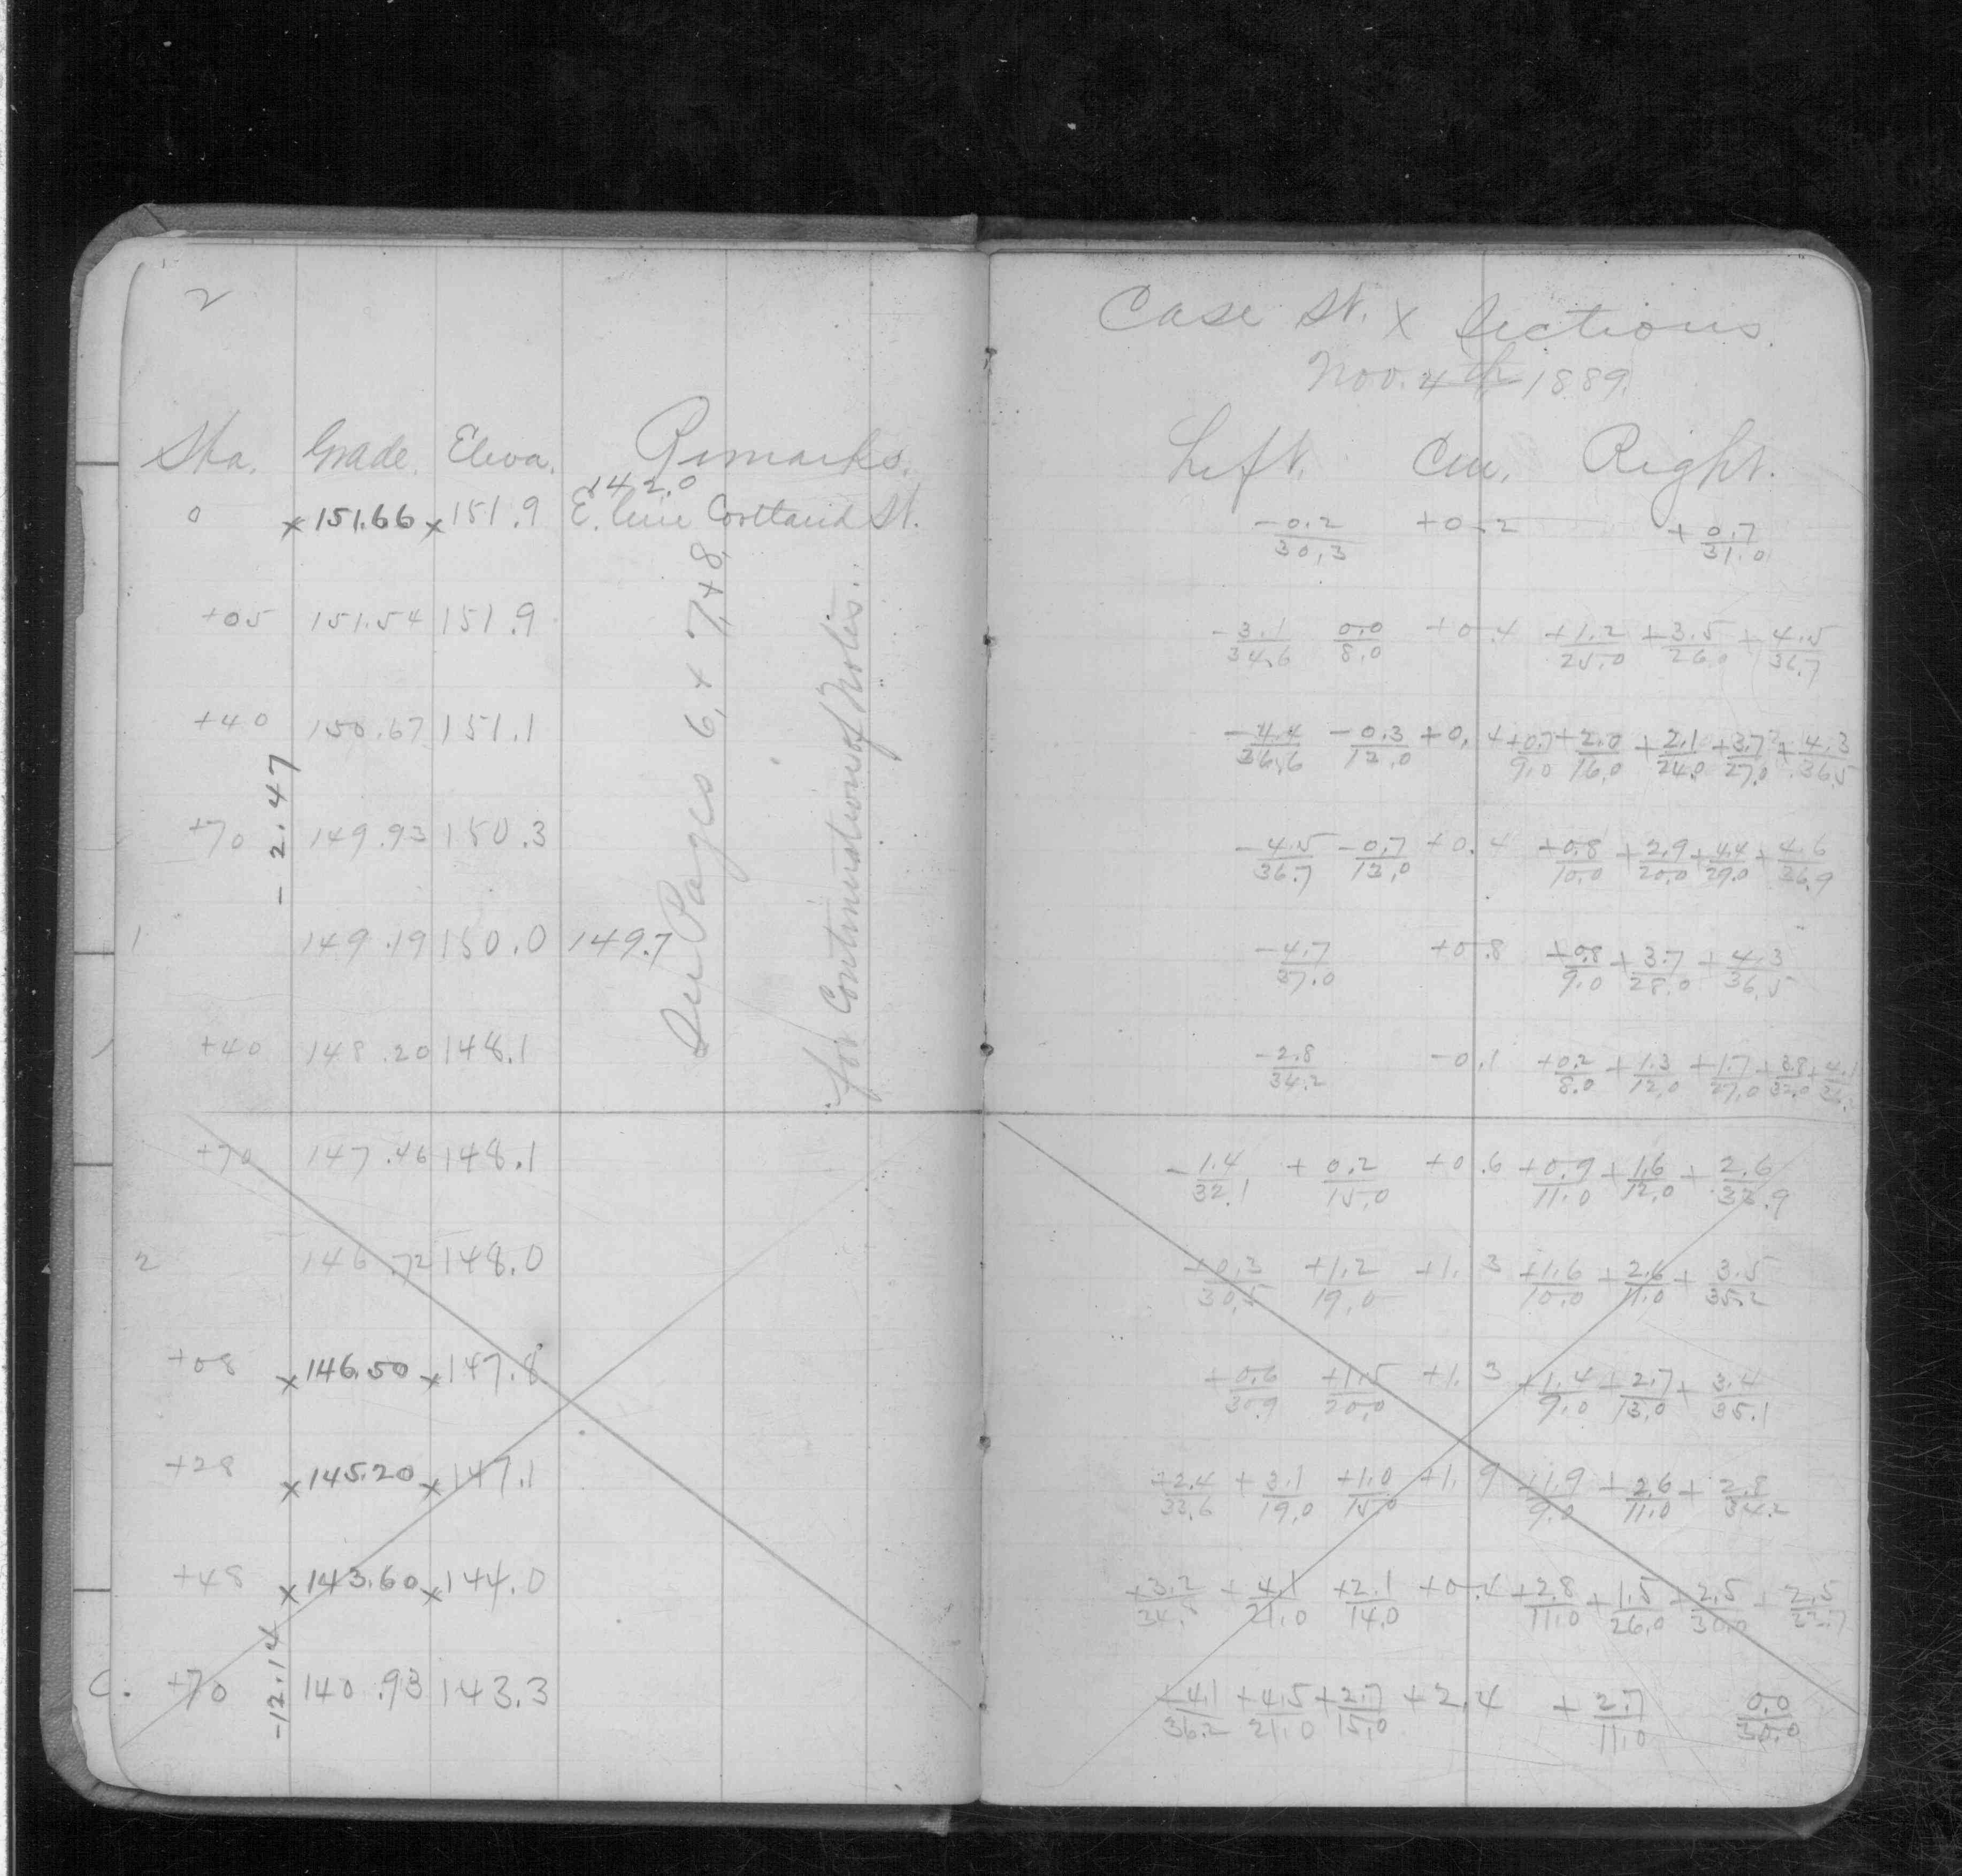 2
Sta. Grade. Eleva. Remarks.
142.0
0 x 151.66 x 151.9 E. line Cortland St.
+05 151.54 151.9
+40 150.67 151.1
- 2.47
+70 149.93 150.3
1 149.19 150.0 149.7
+40 148.20 148.1
See Pages 6, + 7, + 8,
for Continuation of Notes.
+70 147.46 148.1
2 146.72 148.0
+08 x 146.50 x 147.8
+28 x 145.20 x 147.1
+48 x 143.60 x 144.0
-12.14
C. +70 140.93 143.3
Case St. X Sections.
Nov. 4th 1889.
Left. Cen. Right.
-0.2/30.3 +0.2 +0.7/31.0
-3.1/34.6 0.0/8.0 +0.4 +1.2/25.0 +3.5/26.0 +4.5/36.7
-4.4/36.6 -0.3/12.0 +0.4 +0.7/9.0 +2.0/16.0 +2.1/24.0 +3.7/27.0 +4.3/36.5
-4.5/36.7 -0.7/12.0 +0.4 +0.8/10.0 +2.9/20.0 +4.4/29.0 +4.6/36.9
-4.7/37.0 +0.8 +0.8/9.0 +3.7/28.0 +4.3/36.5
-2.8/34.2 -0.1 +0.2/8.0 +1.3/12.0 +1.7/27.0 +3.8/32.0 +4.1
-1.4/32.1 +0.2/15.0 +0.6 +0.9/11.0 +1.6/12.0 +2.6/33.9
+0.3/30.5 +1.2/19.0 +1.3 +1.6/10.0 +2.6/11.0 +3.5/35.2
+0.6/30.9 +1.5/20.0 +1.3 +1.4/9.0 +2.7/13.0 +3.4/35.1
+2.4/33.6 +3.1/19.0 +1.0/15.0 +1.9 +1.9/9.0 +2.6/11.0 +2.8/34.2
+3.2/34.8 +4.1/21.0 +2.1/14.0 +0.4 +2.8/11.0 +1.5/26.0 +2.5/30.0 +2.5/33.7
+4.1/36.2 +4.5/21.0 +2.7/15.0 +2.4 +2.7/11.0 0.0/30.0